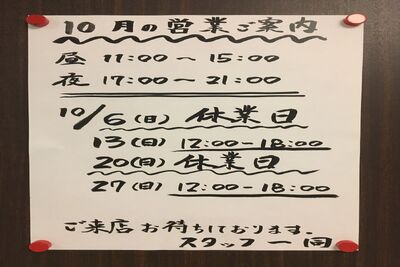 10月の営業ご案内
昼 11:00〜15:00
夜 17:00〜21:00
10/6(日) 休業日
13(日) 12:00-18:00
20(日) 休業日
27(日) 12:00-18:00
ご来店お待ちしております。
スタッフ一同